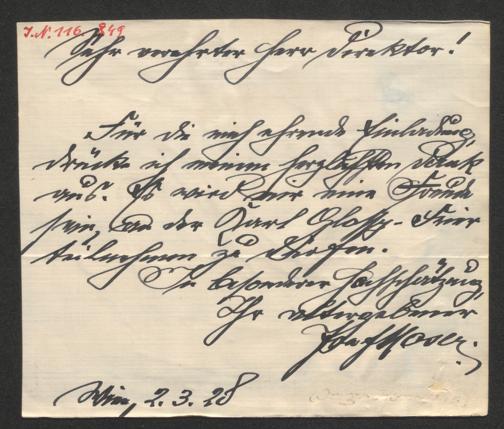 J.N. 116.849
Sehr verehrter Herr Direktor!
Für die mich ehrende Einladung
drücke ich meinen herzlichsten Dank
aus. Es wird mir eine Freude
sein, an der Karl Glossy-Feier
teilnehmen zu dürfen.
In besonderer Hochschätzung
Ihr altergebener
Josef
Wien, 2.3.28